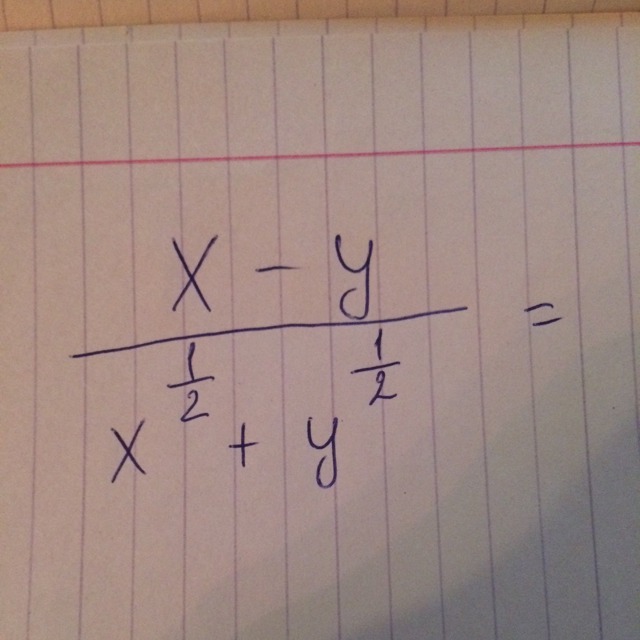 x - y
x^(1/2) + y^(1/2) =